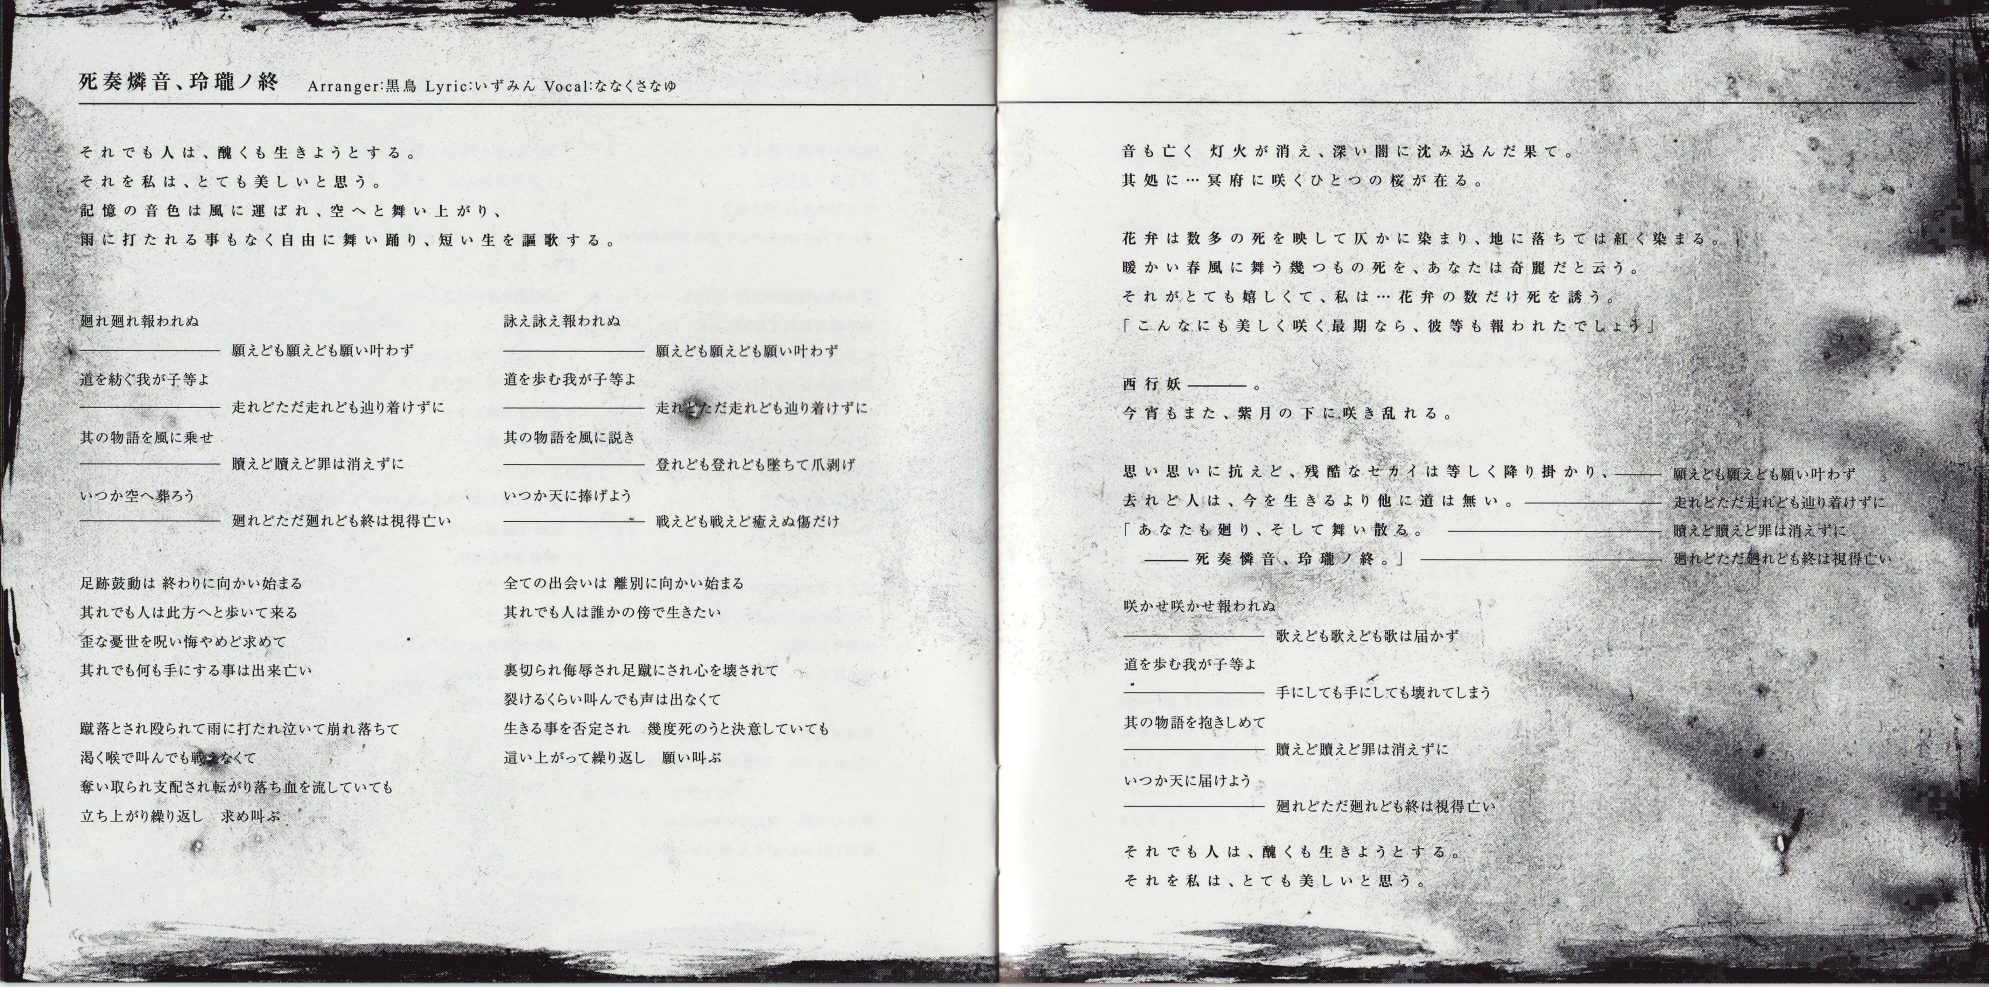 死奏憐音、玲瓏ノ終 Arranger:黒鳥 Lyric:いずみん Vocal:ななくさなゆ
それでも人は、醜くも生きようとする。
それを私は、とても美しいと思う。
記憶の音色は風に運ばれ、空へと舞い上がり、
雨に打たれる事もなく自由に舞い踊り、短い生を謳歌する。
廻れ廻れ報われぬ
――――― 願えども願えども願い叶わず
道を紡ぐ我が子等よ
――――― 走れどただ走れども辿り着けずに
其の物語を風に乗せ
――――― 贖えど贖えど罪は消えずに
いつか空へ葬ろう
――――― 廻れどただ廻れども終は視得亡い
足跡鼓動は 終わりに向かい始まる
其れでも人は此方へと歩いて来る
歪な憂世を呪い悔やめど求めて
其れでも何も手にする事は出来亡い
蹴落とされ殴られて雨に打たれ泣いて崩れ落ちて
渇く喉で叫んでも戦えなくて
奪い取られ支配され転がり落ち血を流していても
立ち上がり繰り返し 求め叫ぶ
詠え詠え報われぬ
――――― 願えども願えども願い叶わず
道を歩む我が子等よ
――――― 走れどただ走れども辿り着けずに
其の物語を風に説き
――――― 登れども登れども墜ちて爪剥げ
いつか天に捧げよう
――――― 戦えども戦えど癒えぬ傷だけ
全ての出会いは 離別に向かい始まる
其れでも人は誰かの傍で生きたい
裏切られ侮辱され足蹴にされ心を壊されて
裂けるくらい叫んでも声は出なくて
生きる事を否定され 幾度死のうと決意していても
這い上がって繰り返し 願い叫ぶ
音も亡く 灯火が消え、深い闇に沈み込んだ果て。
其処に…冥府に咲くひとつの桜が在る。
花弁は数多の死を映して仄かに染まり、地に落ちては紅く染まる。
暖かい春風に舞う幾つもの死を、あなたは奇麗だと云う。
それがとても嬉しくて、私は…花弁の数だけ死を誘う。
「こんなにも美しく咲く最期なら、彼等も報われたでしょう」
西行妖――。
今宵もまた、紫月の下に咲き乱れる。
思い思いに抗えど、残酷なセカイは等しく降り掛かり、―― 願えども願えども願い叶わず
去れど人は、今を生きるより他に道は無い。――――― 走れどただ走れども辿り着けずに
「あなたも廻り、そして舞い散る。 ――――― 贖えど贖えど罪は消えずに
――死奏憐音、玲瓏ノ終。」 ――――― 廻れどただ廻れども終は視得亡い
咲かせ咲かせ報われぬ
――――― 歌えども歌えども歌は届かず
道を歩む我が子等よ
――――― 手にしても手にしても壊れてしまう
其の物語を抱きしめて
――――― 贖えど贖えど罪は消えずに
いつか天に届けよう
――――― 廻れどただ廻れども終は視得亡い
それでも人は、醜くも生きようとする。
それを私は、とても美しいと思う。